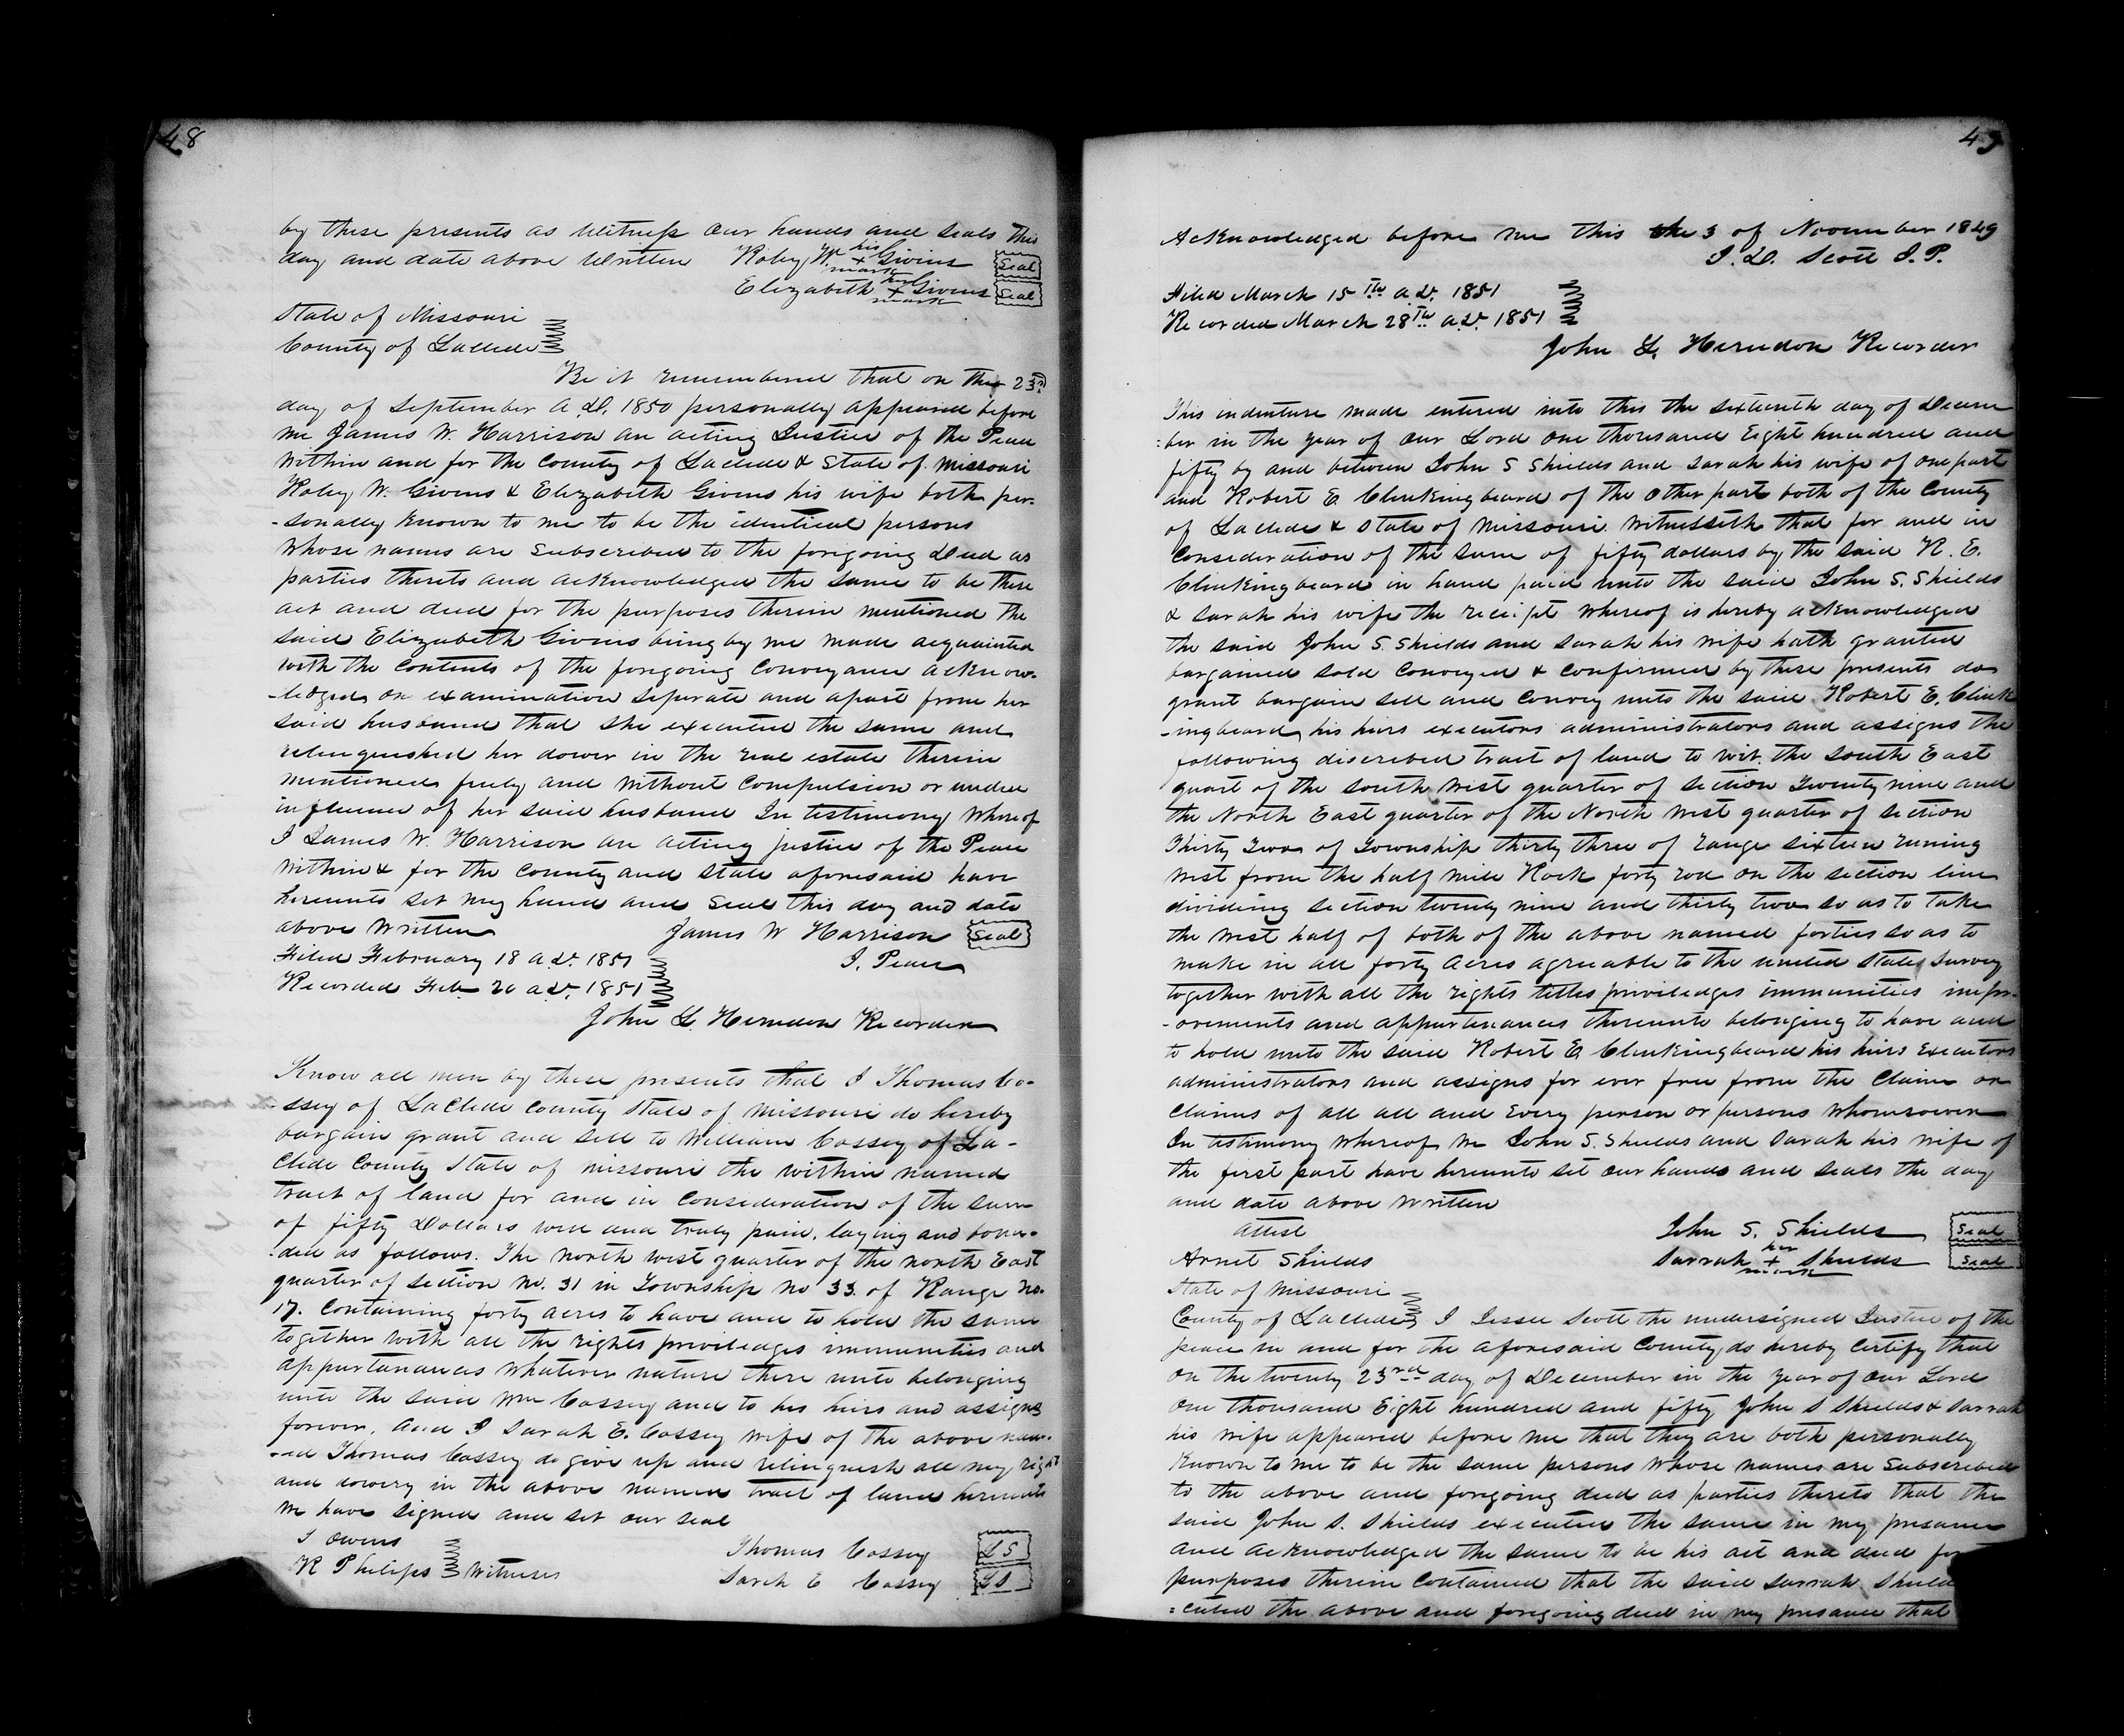 48
by these presents as Witness our hands and seals this
day and date above Written Roley W. his + mark Givins Seal
Elizabeth her + mark Givens Seal
State of Missouri
County of Laclede
Be it remembered that on the 23rd
day of September A.D. 1850 personally appeared before
me James W. Harrison an acting Justice of the Peace
Within and for the County of Laclede & State of Missouri
Roley W. Givens & Elizabeth Givens his wife both per-
-sonally known to me to be the identical persons
Whose names are subscribed to the forigoing Deed as
parties thereto and acknowledged the same to be there
act and deed for the purposes therein mentioned the
said Elizabeth Givens being by me made acquainted
with the contents of the forgoing conveyance acknow-
-ledged on examination seperate and apart from her
said husband that she executed the same and
relinquished her dower in the real estate therein
mentioned freely and without compulsion or undue
influence of her said husband In testimony whereof
I James W. Harrison an acting justice of the Peace
Within & for the County and State aforesaid have
hereunto set my hand and seal this day and date
above Written James W Harrison Seal
Filed February 18 A.D. 1851 J. Peace
Recorded Feb. 20 A.D. 1851
John L Herndon Recorder
Know all men by these presents that I Thomas Co-
-ssey of LaClede County State of Missouri do hereby
bargain grant and sell to William Cossey of La-
Clede County State of Missouri the within named
tract of land for and in consideration of the sum
of fifty Dollars well and truly paid, laying and boun-
-ded as follows. The north west quarter of the north East
quarter of section No. 31 in Township No 33. of Range No.
17. Containing forty acres to have and to hold the same
together with all the rights priviledges immunities and
appurtanances whatever nature there unto belonging
unto the said Wm Cossey and to his heirs and assigns
forever. And I Sarah E. Cossey wife of the above nam-
-ed Thomas Cossey do give up and relinquish all my right
and dowery in the above named tract of land hereunto
we have signed and set our seal
J Owens
R Philips Witneses Thomas Cossey L S
Sarah E Cossey L S
49
Acknowledged before me this the 3 of November 1849
J. D. Scott J. P.
Filed March 15th A.D. 1851
Recorded March 28th A.D. 1851
John L. Herndon Recorder
This indenture made entered into this the sixteenth day of Decem
:ber in the year of our Lord one thousand Eight hundred and
fifty by and between John S Shields and Sarah his wife of one part
and Robert E. Clinkingbeard of the other part both of the County
of Laclede & State of Missouri. Witnesseth that for and in
Consideration of the sum of fifty dollars by the said R. E.
Clinkingbeard in hand paid unto the said John S. Shields
& Sarah his wife the receipt whereof is hereby acknowledged
the said John S. Shields and Sarah his wife hath granted
bargained sold conveyed & confirmed by these presents do
grant bargain sell and convey unto the said Robert E. Clink
-ingbeard, his heirs executors administrators and assigns the
following discribed tract of land to wit. the South East
quart of the south west quarter of section Twenty nine and
the North East quarter of the North West quarter of section
Thirty Two of Township thirty three of range sixteen runing
West from the half mile Rock forty rod on the section line
dividing section twenty nine and thirty two so as to take
the West half of both of the above named forties so as to
make in all forty acres agreeable to the united States survey
together with all the rights titles priviledges immunities impr-
-ovements and appurtanances thereunto belonging to have and
to hold unto the said Robert E Clinkingbeard his heirs executors
administrators and assigns for ever free from the claim or
claims of all all and every person or persons whomsoever
In testimony whereof we John S. Shields and Sarah his wife of
the first part have hereunto set our hands and seals the day
and date above written
Attest John S. Shields Seal
Arnet Shields Sarrah her + mark Shields Seal
State of Missouri
County of Laclede I Jessee Scott the undersigned Justice of the
peace in and for the aforesaid County do hereby certify that
on the twenty 23rd day of December in the year of our Lord
one thousand Eight hundred and fifty John S Shields & Sarrah
his wife appeared before me that they are both personally
Known to me to be the same persons whose names are subscribed
to the above and forgoing deed as parties thereto that the
said John S. Shields executed the same in my presance
and acknowledged the same to be his act and deed for
purposes therein contained that the said Sarrah Shield
:cuted the above and foregoing deed in my presance that